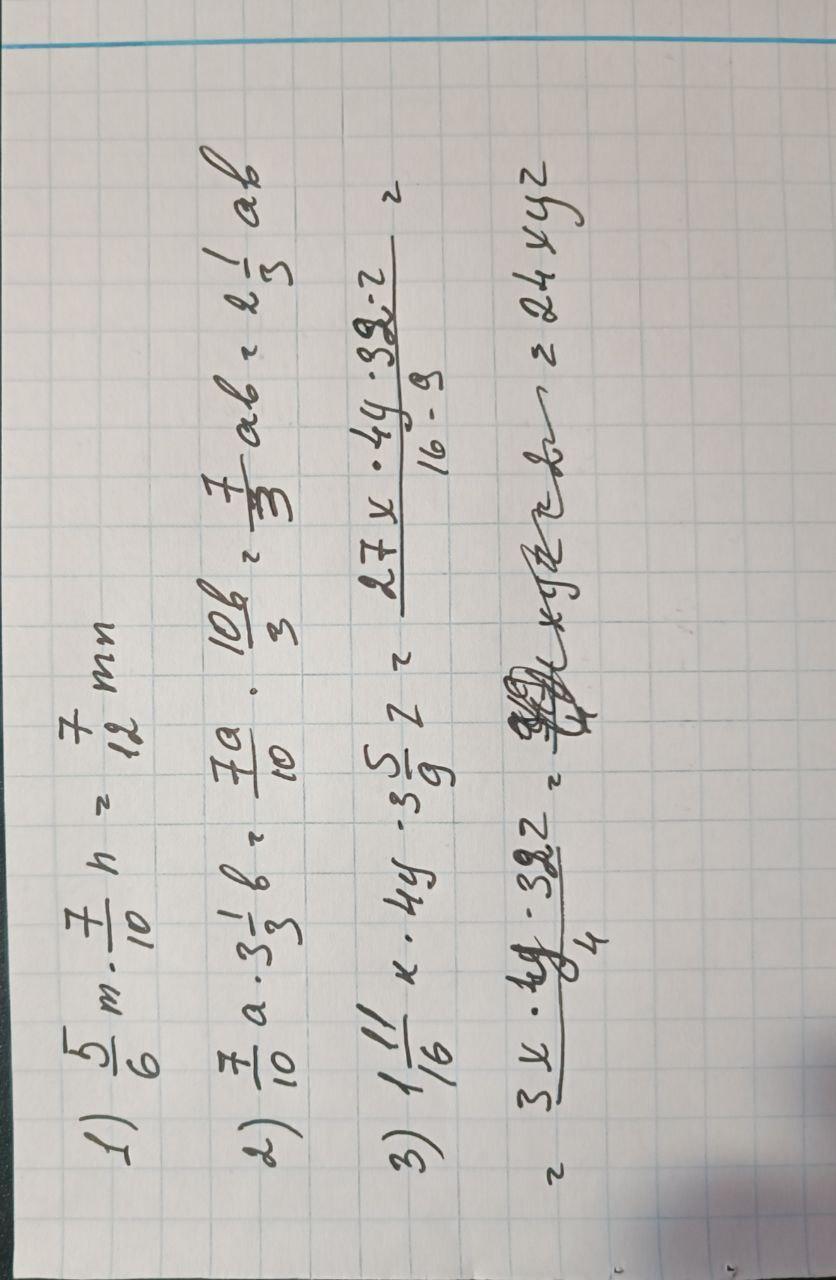 1) 5/6 m · 7/10 n = 7/12 mn
2) 7/10 a · 3 1/3 b = 7a/10 · 10b/3 = 7/3 ab = 2 1/3 ab
3) 1 11/16 x · 4y · 3 5/9 z = 27x · 4y · 32 · z / 16 · 9 =
= 3x · 4y · 32z / 4 = = 24xyz